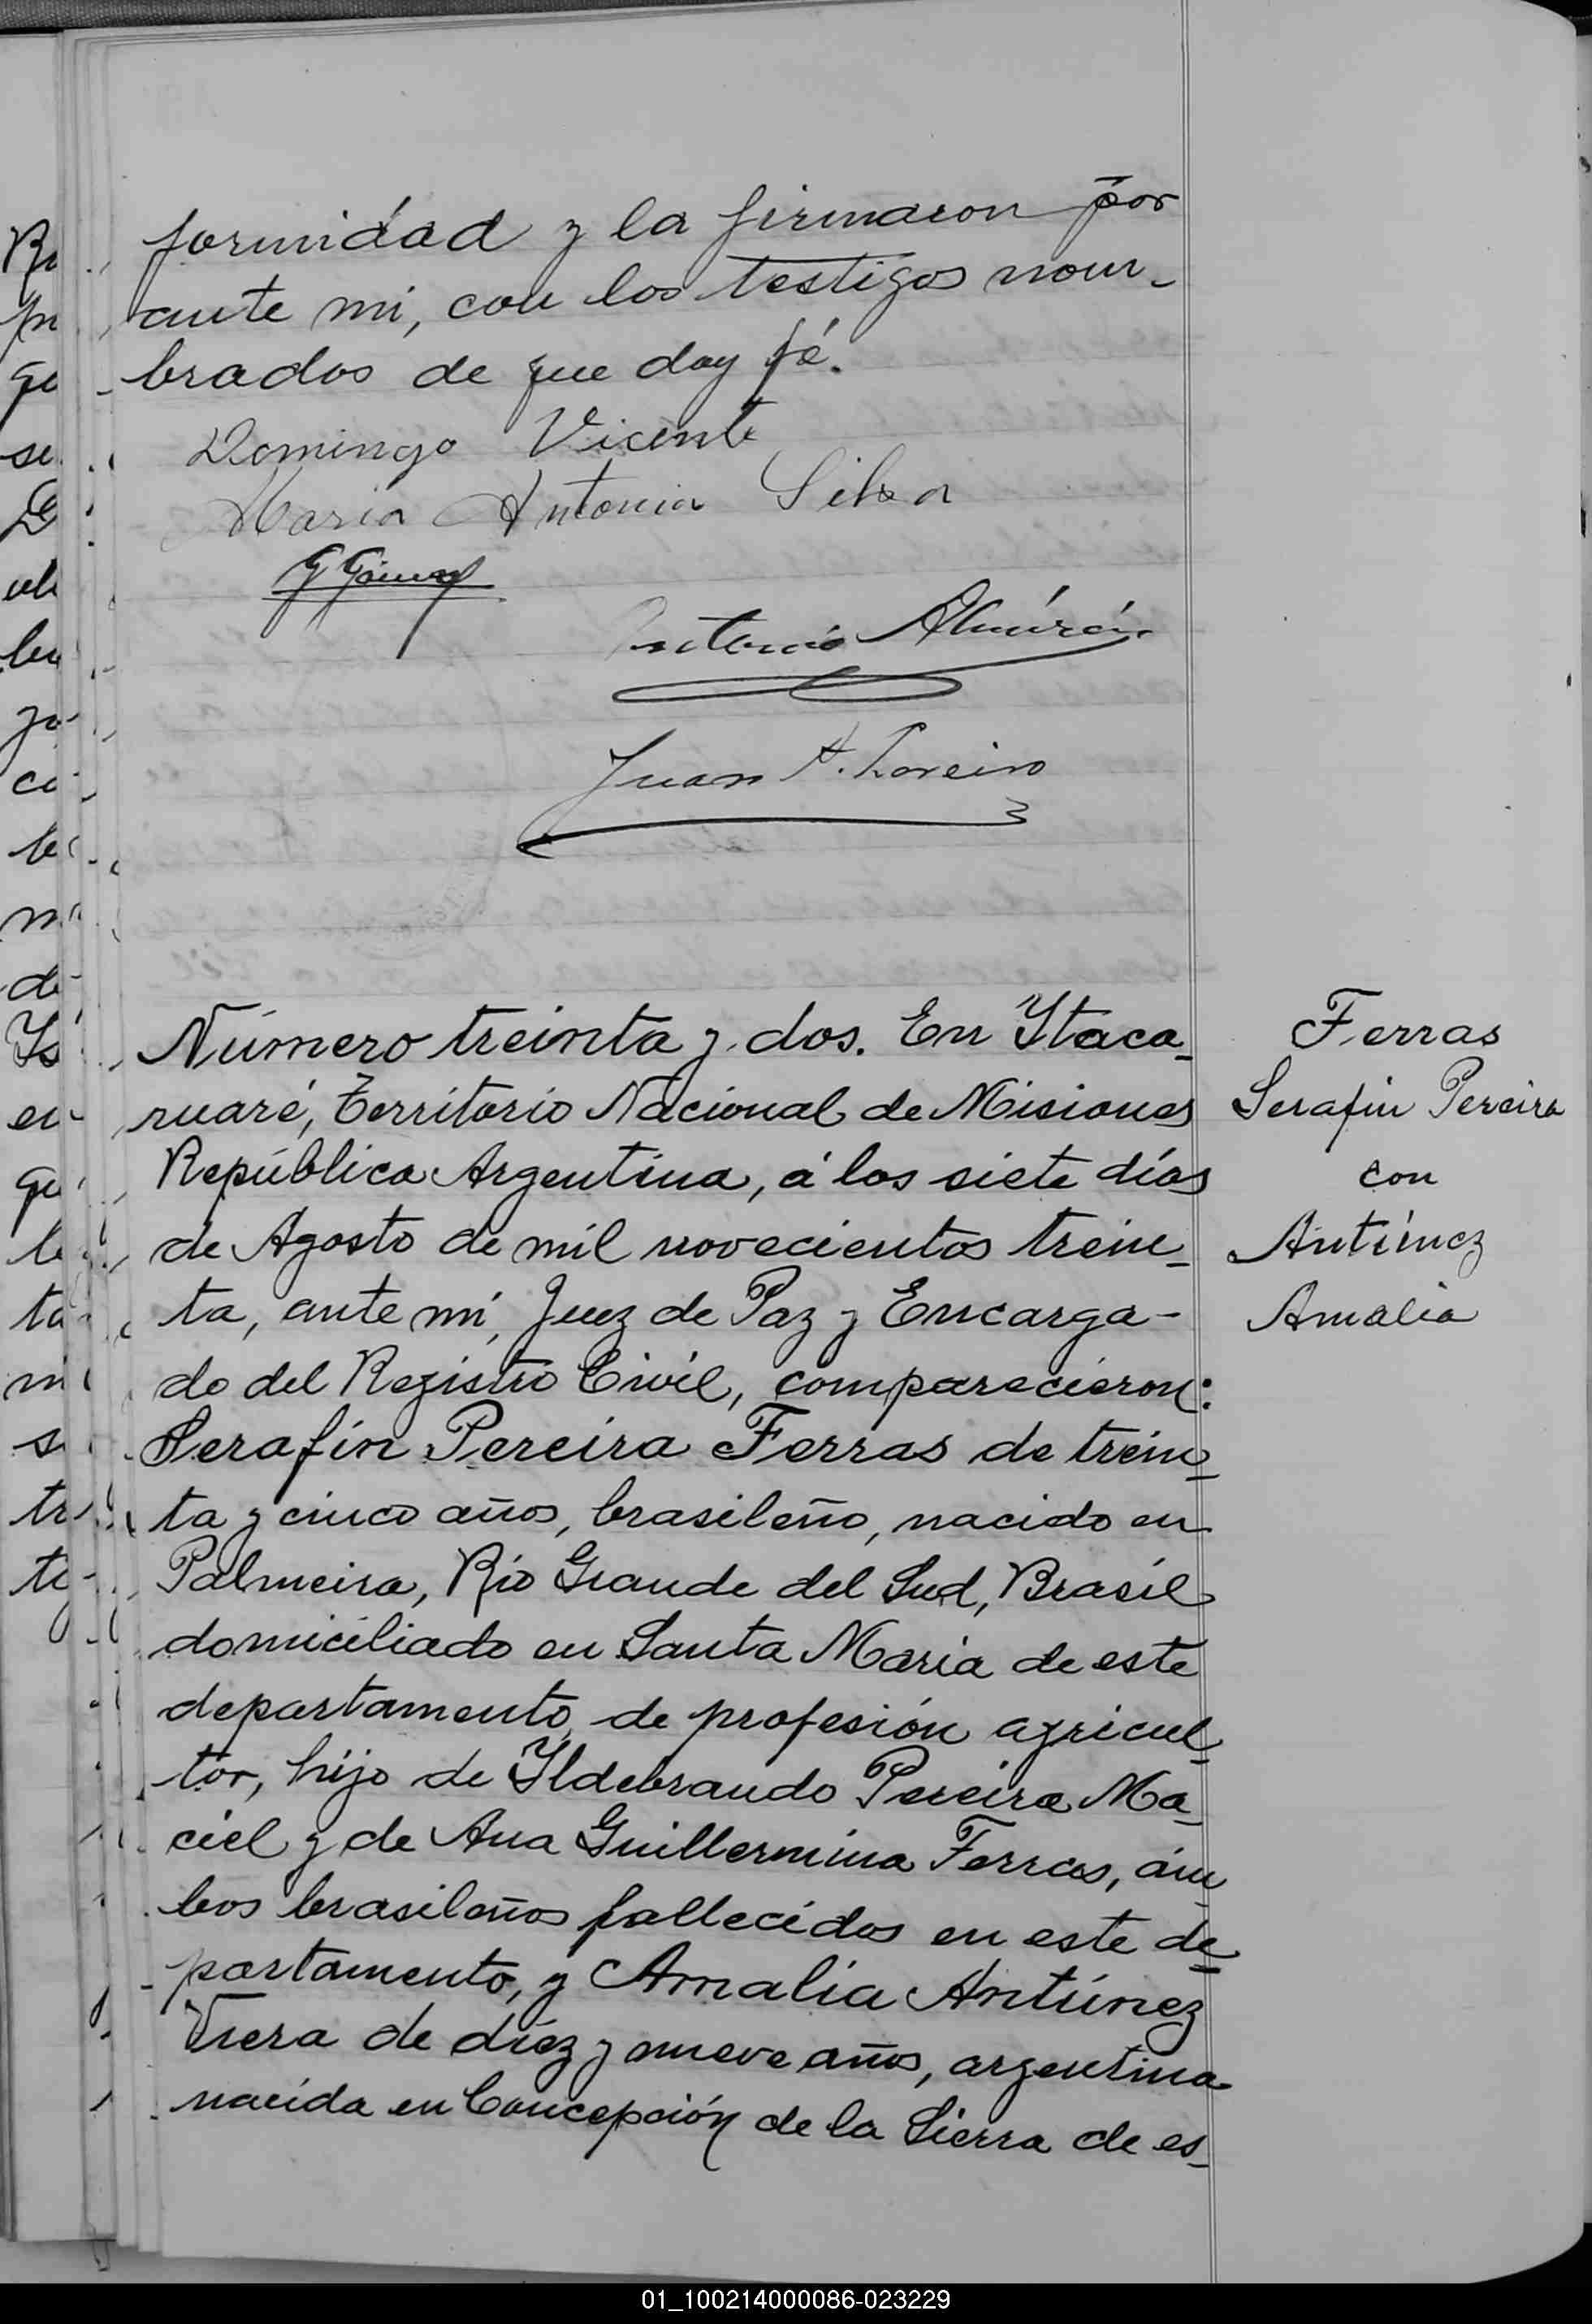 formidad y la firmaron por
ante mi, con los testigos nom-
brados de que doy fé.
Domingo Vicente
Maria Antonia Silva
G Gómez
Antonio Almirón
Juan A. Loreiro
Número treinta y dos. En Ytaca-
ruaré, Territorio Nacional de Misiones
República Argentina, á los siete días
de Agosto de mil novecientos trein-
ta, ante mí, Juez de Paz y Encarga-
do del Registro Civil, comparecieron:
Serafín Pereira Ferras de trein-
ta y cinco años, brasileño, nacido en
Palmeira, Río Grande del Sud, Brasil
domiciliado en Santa María de este
departamento, de profesión agricul-
tor, hijo de Yldebrando Pereira Ma-
ciel y de Ana Guillermina Ferras, ám-
bos brasileños fallecidos en este de-
partamento, y Amalia Antúnez
Viera de diez y nueve años, argentina
nacida en Concepción de la Sierra de es-
Ferras
Serafin Pereira
con
Antúnez
Amalia
01_100214000086-023229